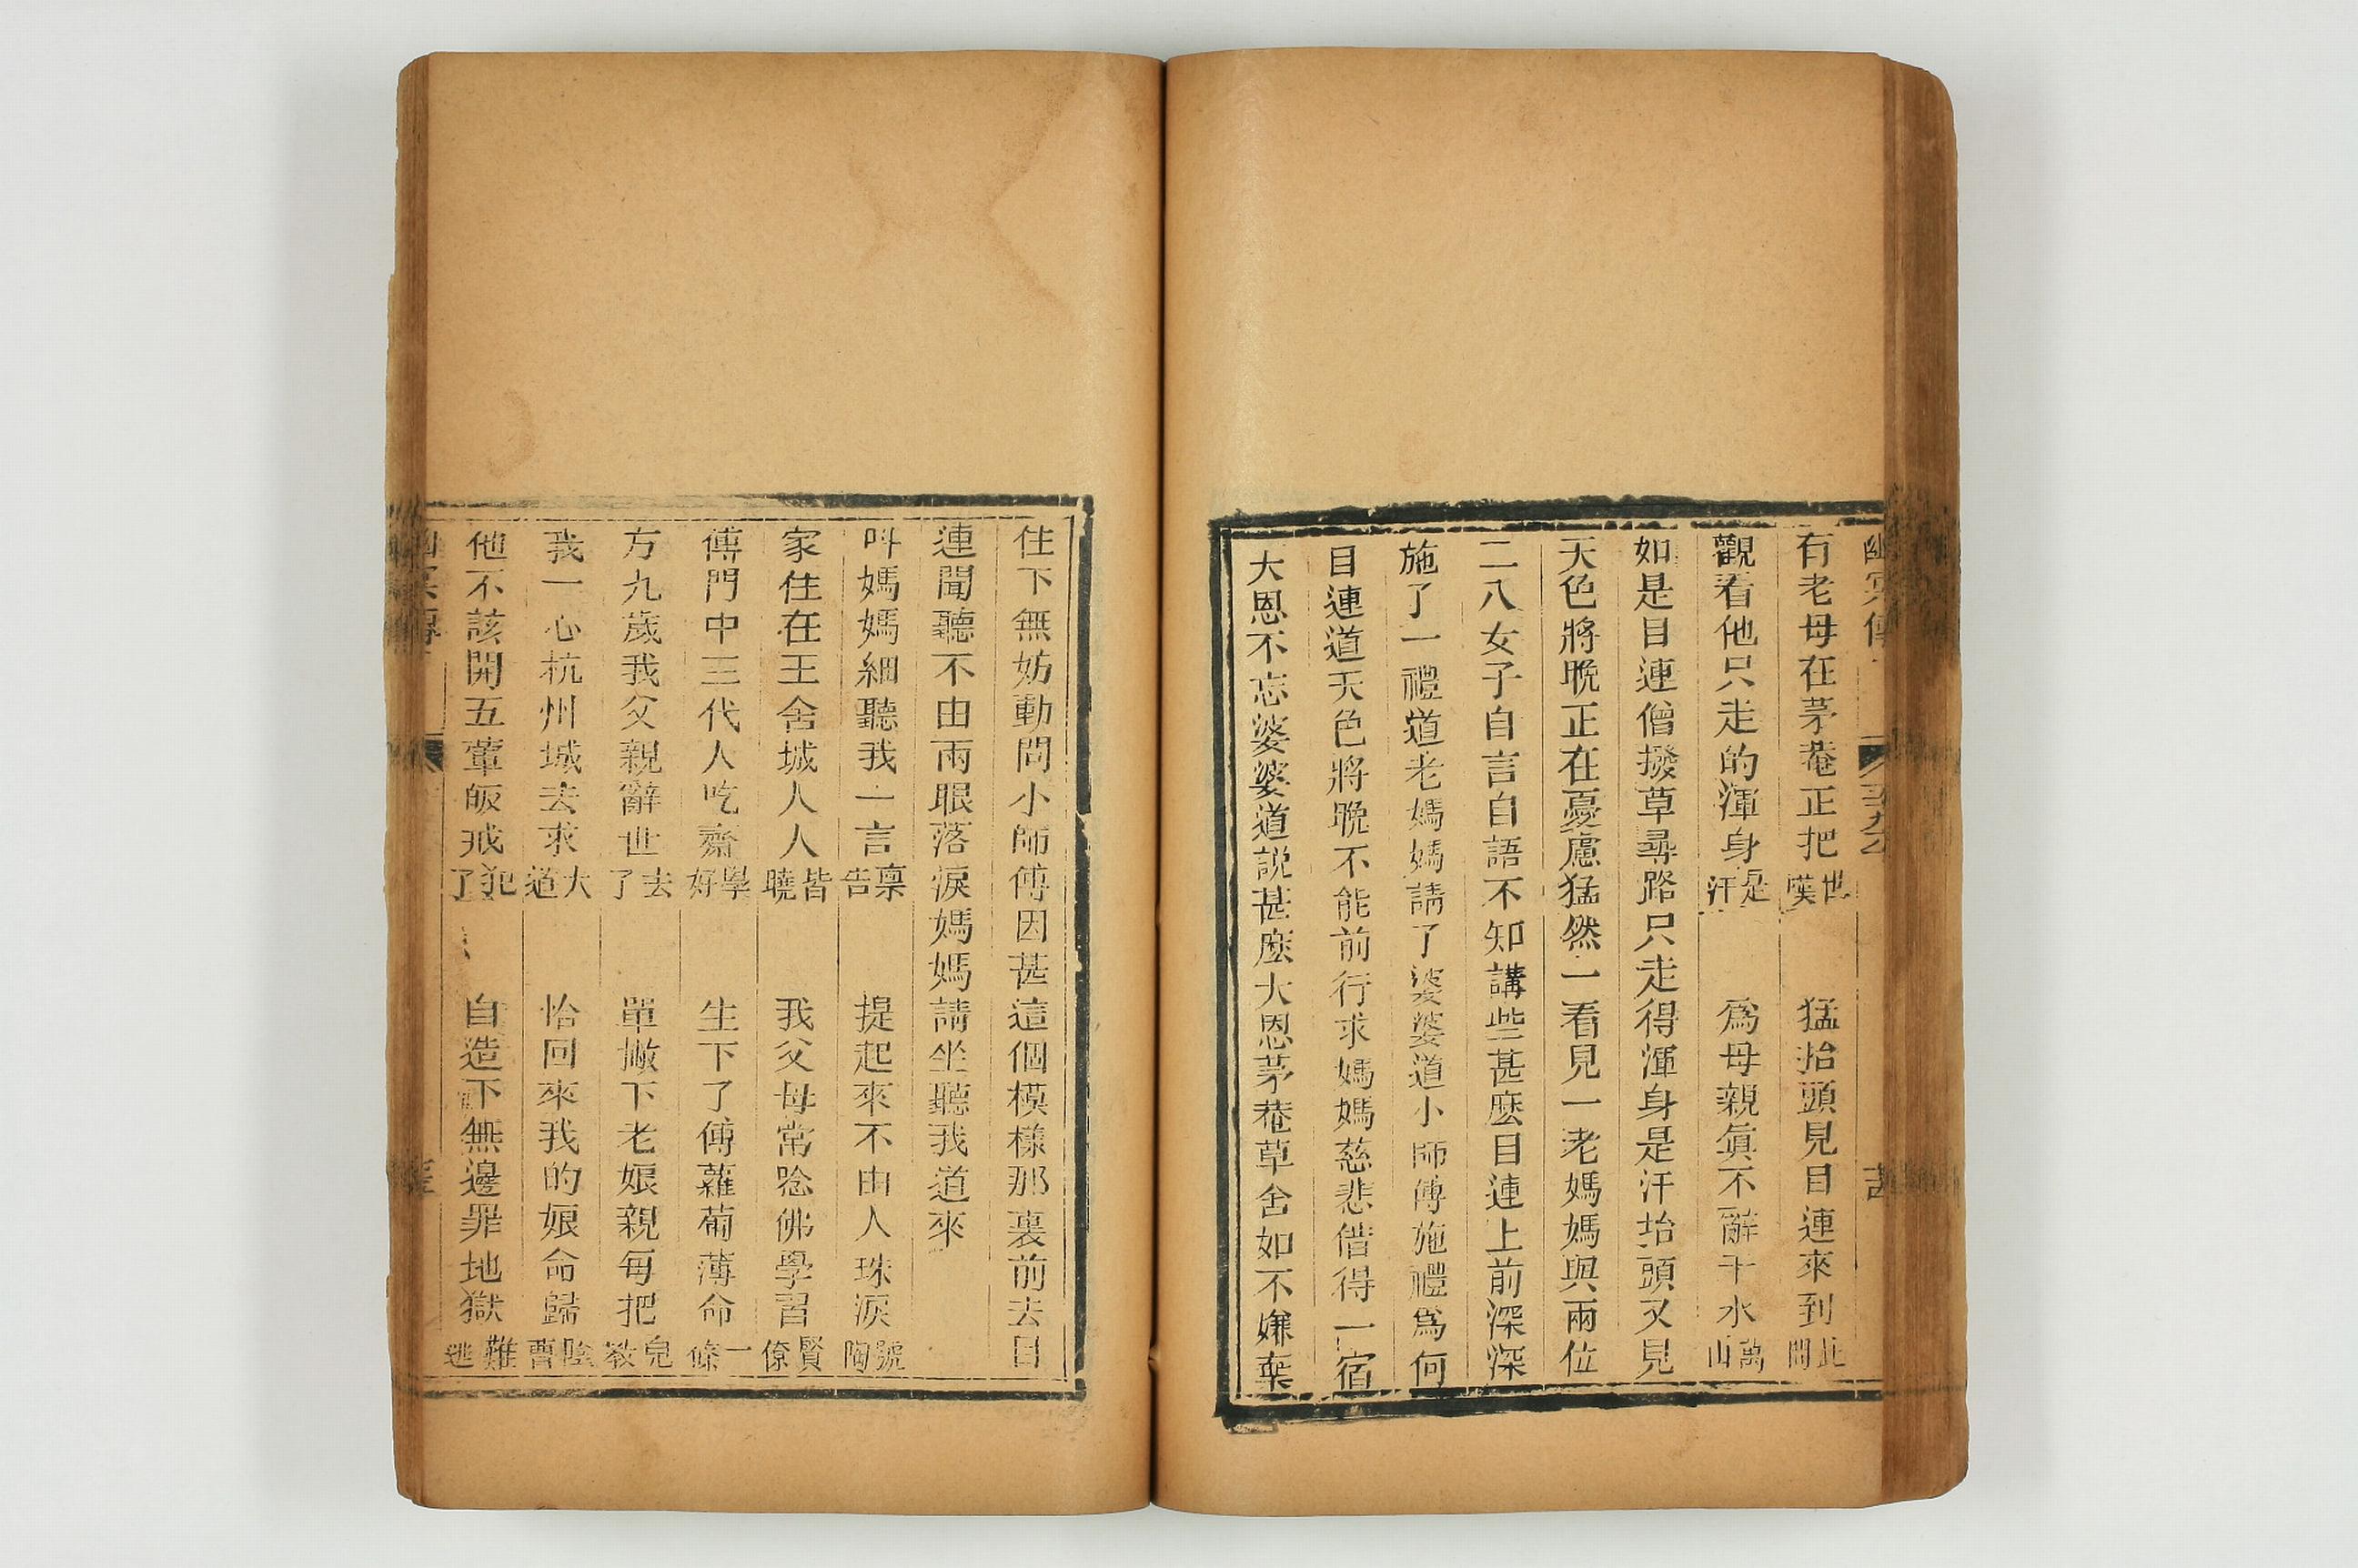 幽冥傳
有老母在茅菴正把世嘆 猛抬頭見目連來到此間
觀看他只走的渾身是汗 爲母親眞不辭千水萬山
如是目連僧撥草尋路只走得渾身是汗抬頭又見
天色將晚正在憂慮猛然一看見一老媽媽與兩位
二八女子自言自語不知講些甚麼目連上前深深
施了一禮道老媽媽請了婆婆道小師傅施禮爲何
目連道天色將晚不能前行求媽媽慈悲借得一宿
大恩不忘婆婆道説甚麽大恩茅菴草舍如不嫌棄
住下無妨動問小師傅因甚這個模樣那裏前去目
連聞聽不由兩眼落淚媽媽請坐聽我道來
叫媽媽細聽我一言禀告 提起來不由人珠淚號啕
家住在王舍城人人皆曉 我父母常唸佛學習賢僚
傅門中三代人吃齋學好 生下了傅蘿蔔薄命一條
方九歲我父親辭世去了 單撇下老娘親每把兒教
我一心杭州城去求大道 恰回來我的娘命歸陰曹
他不該開五葷皈戒犯了 自造下無邊罪地獄難逃